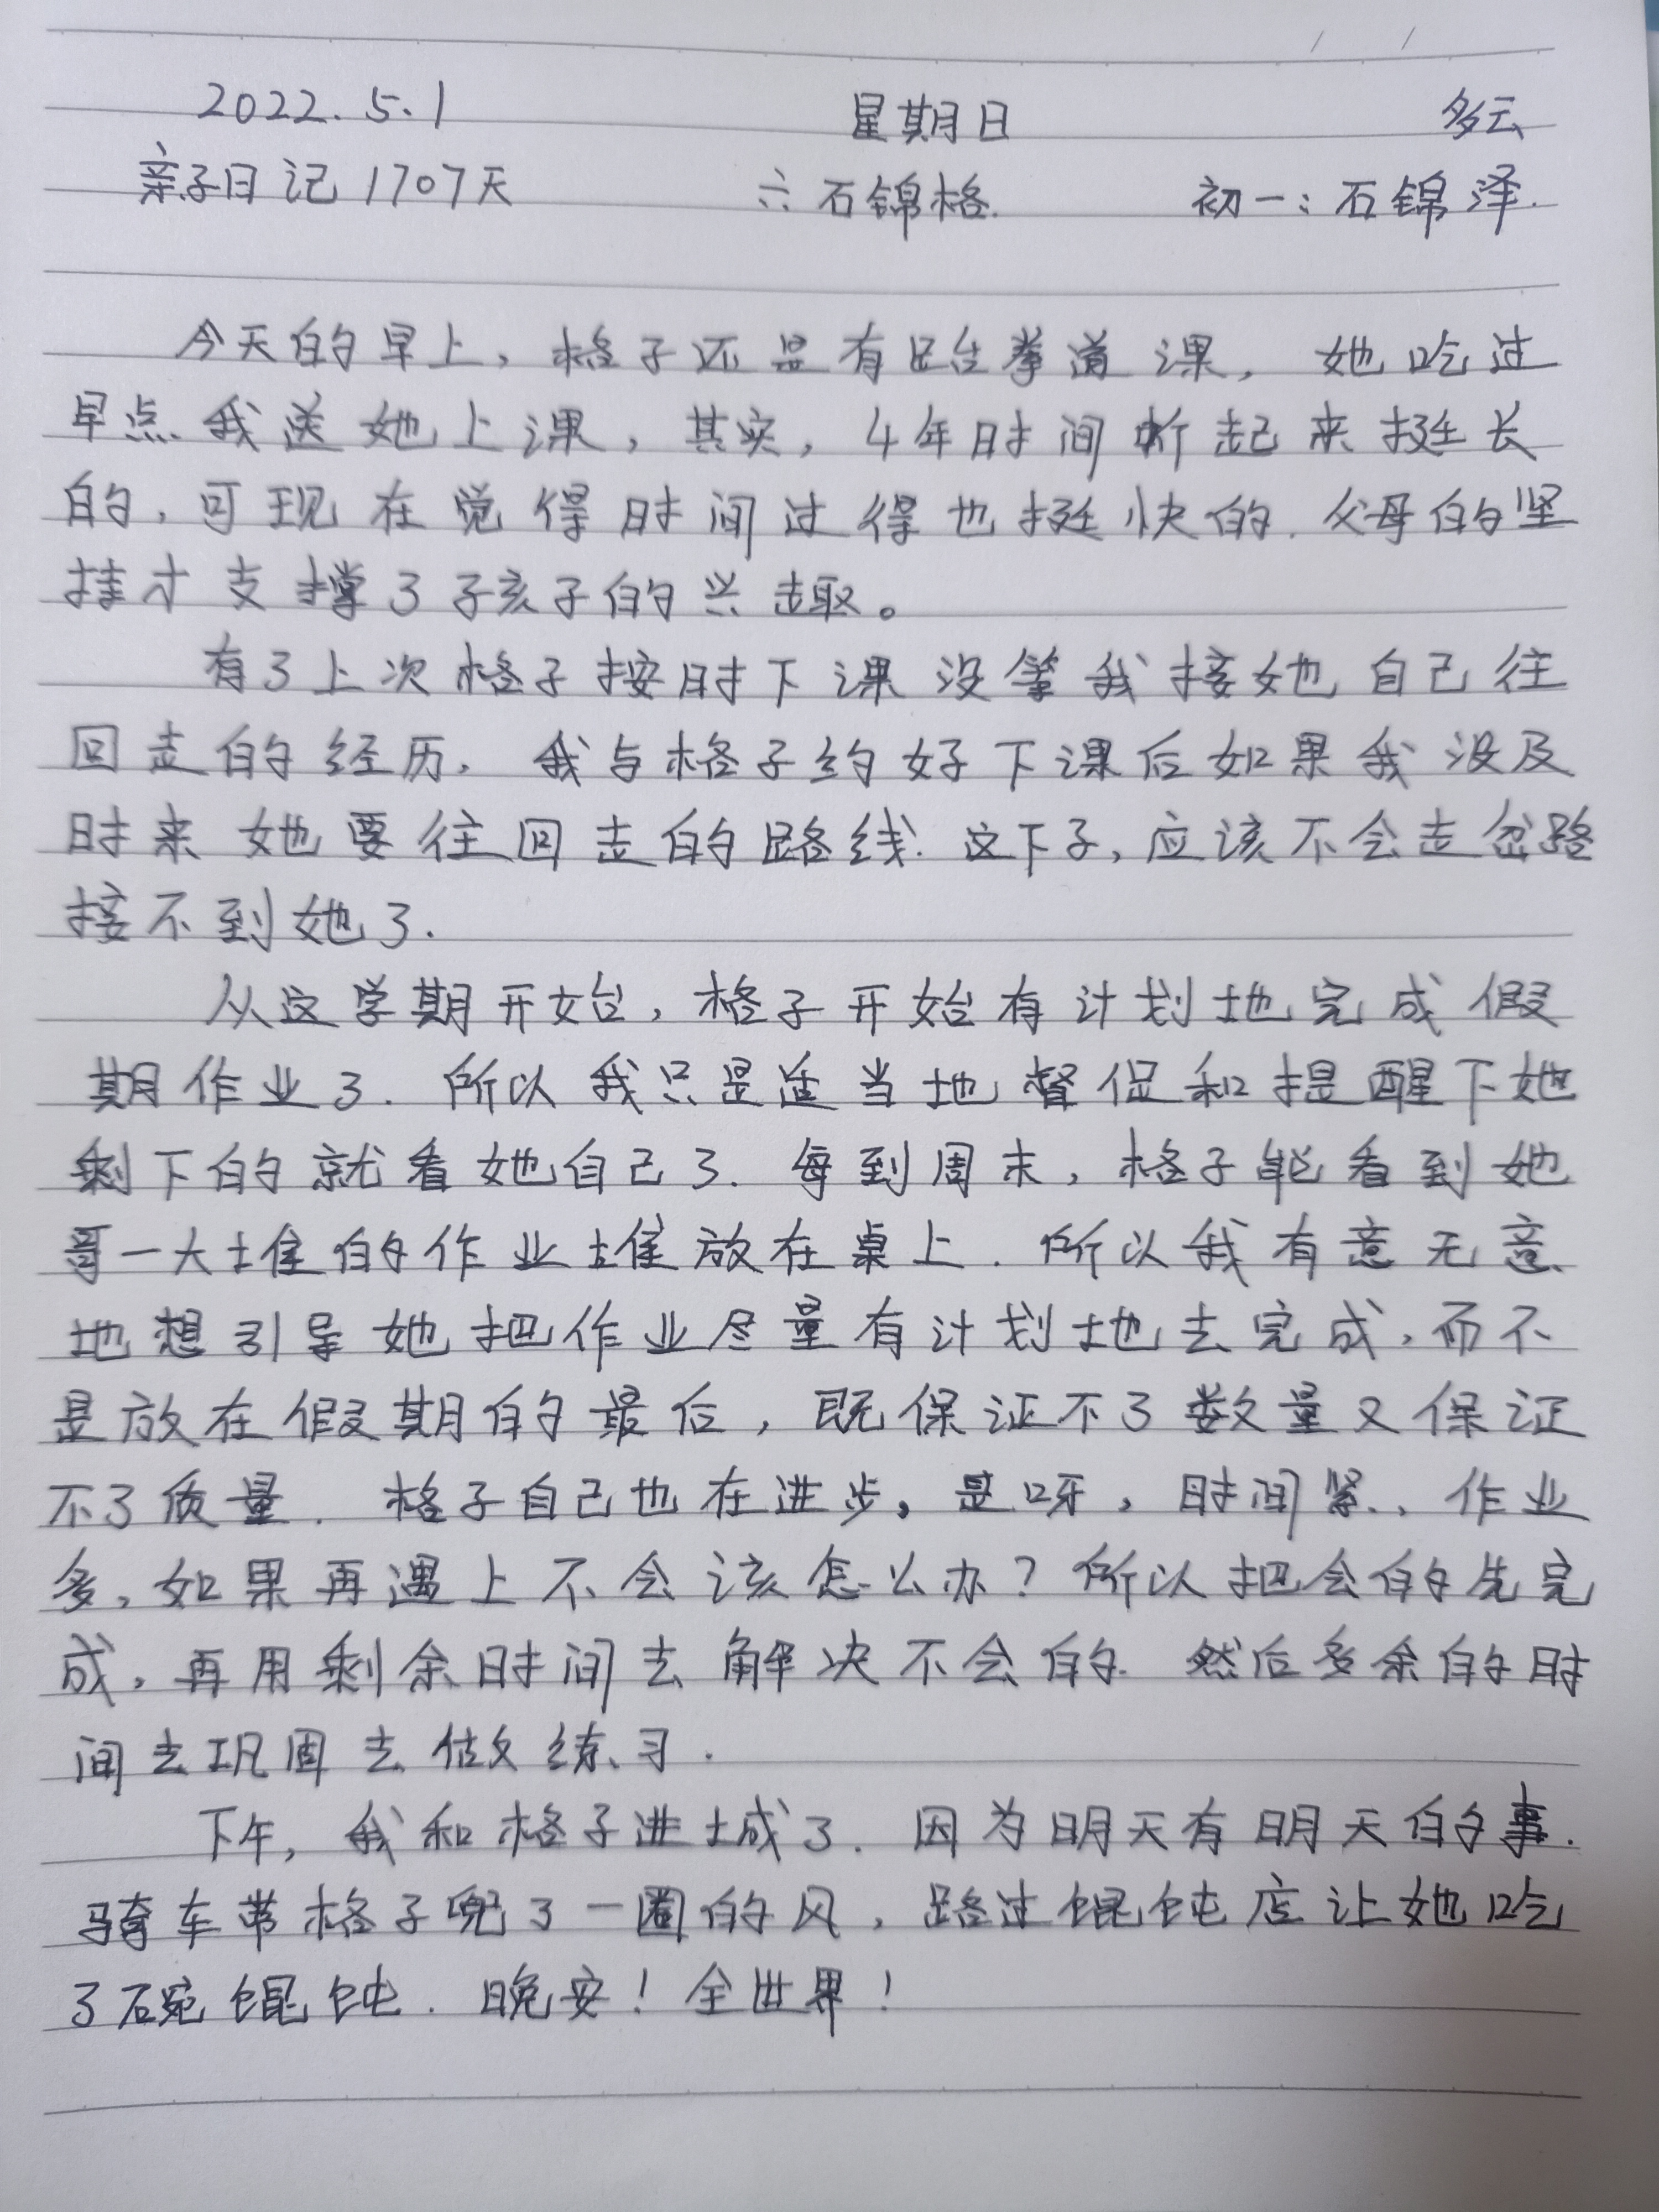 2022.5.1 星期日 多云
亲子日记1707天 六石锦格. 初一:石锦泽.
今天的早上,格子还是有跆拳道课,她吃过
早点我送她上课,其实,4年时间听起来挺长
的,可现在觉得时间过得也挺快的.父母的坚
持才支撑了子孩子的兴趣。
有了上次格子按时下课没等我接她自己往
回走的经历,我与格子约好下课后如果我没及
时来她要往回走的路线.这下子,应该不会走岔路
接不到她了.
从这学期开始,格子开始有计划地完成假
期作业了.所以我只是适当地督促和提醒下她
剩下的就看她自己了.每到周末,格子能看到她
哥一大堆的作业堆放在桌上.所以我有意无意
地想引导她把作业尽量有计划地去完成,而不
是放在假期的最后,既保证不了数量又保证
不了质量.格子自己也在进步,是呀,时间紧、作业
多,如果再遇上不会该怎么办?所以把会的先完
成,再用剩余时间去解决不会的.然后多余的时
间去巩固去做练习.
下午,我和格子进城了.因为明天有明天的事.
骑车带格子兜了一圈的风,路过馄饨店让她吃
了碗馄饨.晚安!全世界!